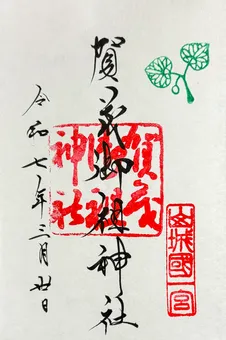 山城國一宮
賀茂御祖神社
賀茂
御祖
神社
令和七年三月廿日